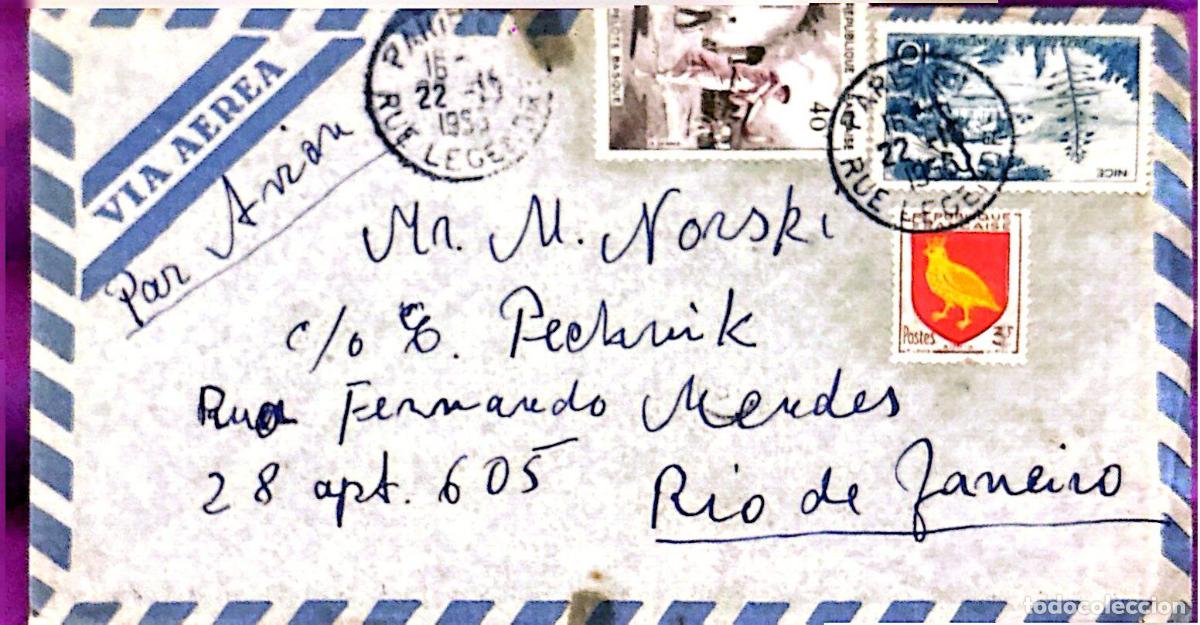 VIA AEREA
Par Avion
PARIS
16-
22 -
195
RUE LEGENDRE
PELOTE BASQUE
REPUBLIQUE
40
PARIS
22
RUE LEGEN
10
NICE
REPUBLIQUE
FRANÇAISE
Postes 3F
Mr. M. Norski
c/o E. Pechnik
Rua Fernando Mendes
28 apt. 605 Rio de Janeiro
todocoleccion